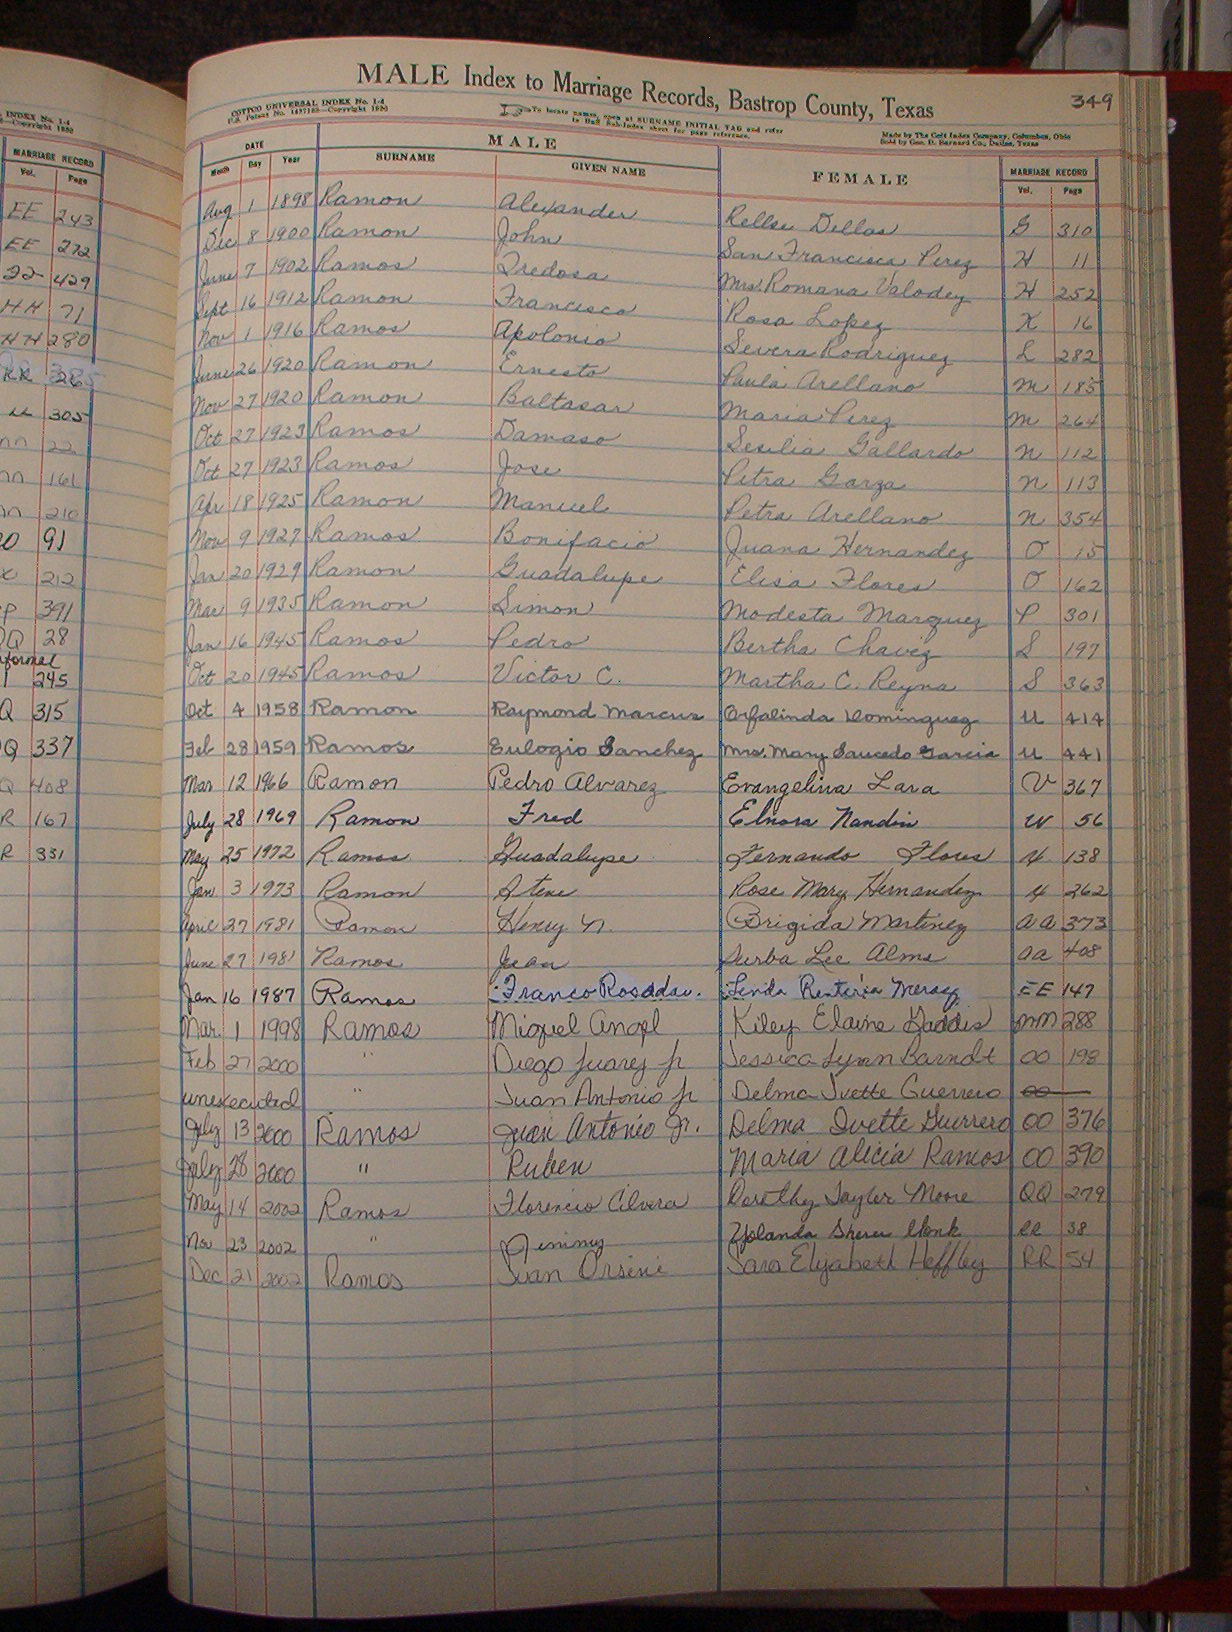 INDEX No. 1-4
Copyright 1930
MARRIAGE RECORD
Vol. Page
EE 243
EE 272
429
HH 71
HH 280
RR
305
22
161
210
91
212
391
QQ 28
245
Q 315
QQ 337
Q 408
R 167
R 331
MALE Index to Marriage Records, Bastrop County, Texas 349
COTTCO UNIVERSAL INDEX No. 1-4
U.S. Patent No. 1497188—Copyright 1930
To locate names, open at SURNAME INITIAL TAB and refer
to Buff Sub-Index sheet for page reference.
Made by The Cott Index Company, Columbus, Ohio
Sold by Geo. D. Barnard Co., Dallas, Texas
DATE MALE FEMALE MARRIAGE RECORD
Month Day Year SURNAME GIVEN NAME Vol. Page
Aug 1 1898 Ramon Alexander Dellas G 310
Dec 8 1900 Ramon John San Francisca Perez H 11
June 7 1902 Ramos Tredosa Mrs. Romana Valodez H 252
Sept 16 1912 Ramon Francisco Rosa Lopez K 16
Nov 1 1916 Ramos Apolonio Severa Rodriguez L 282
June 26 1920 Ramon Ernesto Paula Arellano M 185
Nov 27 1920 Ramon Baltasar Maria Perez M 264
Oct 27 1923 Ramos Damaso Sesilia Gallardo N 112
Oct 27 1923 Ramos Jose Petra Garza N 113
Apr 18 1925 Ramon Manuel Petra Arellano N 354
Nov 9 1927 Ramos Bonifacio Juana Hernandez O 15
Jan 20 1929 Ramon Guadalupe Elisa Flores O 162
Mar 9 1935 Ramon Simon Modesta Marquez P 301
Jan 16 1945 Ramos Pedro Bertha Chavez S 197
Oct 20 1945 Ramos Victor C. Martha C. Reyna S 363
Oct 4 1958 Ramon Raymond Marcus Orfalinda Dominguez U 414
Feb 28 1959 Ramos Eulogio Sanchez Mrs. Mary Saucedo Garcia U 441
Mar 12 1966 Ramon Pedro Alvarez Evangelina Lara V 367
July 28 1969 Ramon Fred Elnora Nandin W 56
May 25 1972 Ramos Guadalupe Fernando Flores Y 138
Jan 3 1973 Ramon Steve Rose Mary Hernandez Y 262
April 27 1981 Ramon Henry N. Brigida Martinez AA 373
June 27 1981 Ramos Juan Lee Alms AA 408
Jan 16 1987 Ramos Franco Linda Renteria EE 147
Mar 1 1998 Ramos Miguel Angel Kiley Elaine Gaddis MM 288
Feb 27 2000 " Diego Juarez Jr Jessica Lynn Barndt OO 198
unexecuted " Juan Antonio Jr Delma Ivette Guerrero OO
July 13 2000 Ramos Juan Antonio Jr. Delma Ivette Guerrero OO 376
July 28 2000 " Ruben Maria Alicia Ramos OO 390
May 14 2002 Ramos Florencio Dorothy Taylor Moore QQ 279
Nov 23 2002 " Jimmy Yolanda RR 38
Dec 21 2002 Ramos Ivan Orsini Sara Elizabeth Heffley RR 54